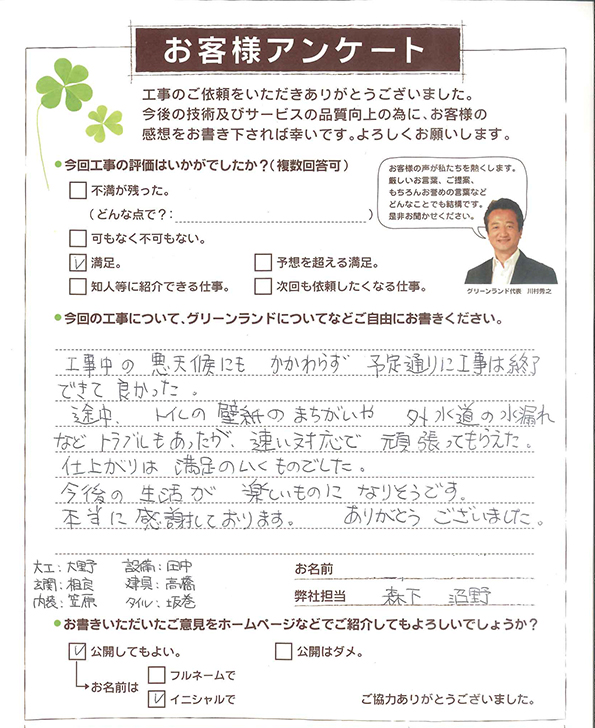 お客様アンケート
工事のご依頼をいただきありがとうございました。
今後の技術及びサービスの品質向上の為に、お客様の
感想をお書き下されば幸いです。よろしくお願いします。
●今回工事の評価はいかがでしたか？（複数回答可）
不満が残った。
（どんな点で？：）
可もなく不可もない。
満足。 予想を超える満足。
知人等に紹介できる仕事。 次回も依頼したくなる仕事。
お客様の声が私たちを熱くします。
厳しいお言葉、ご提案、
もちろんお誉めの言葉など
どんなことでも結構です。
是非お聞かせください。
グリーンランド代表 川村秀之
●今回の工事について、グリーンランドについてなどご自由にお書きください。
工事中の悪天候にも かかわらず 予定通りに工事は終了
できて良かった。
途中、トイレの壁紙のまちがいや 外水道の水漏れ
などトラブルもあったが、速い対応で 頑張ってもらえた。
仕上がりは 満足のいくものでした。
今後の生活が 楽しいものに なりそうです。
本当に感謝しております。 ありがとう ございました。
大工：大野 設備：田中
玄関：相良 建具：高橋
内装：笠原 タイル：坂巻
お名前
弊社担当 森下 沼野
●お書きいただいたご意見をホームページなどでご紹介してもよろしいでしょうか？
公開してもよい。 公開はダメ。
お名前は フルネームで
イニシャルで
ご協力ありがとうございました。